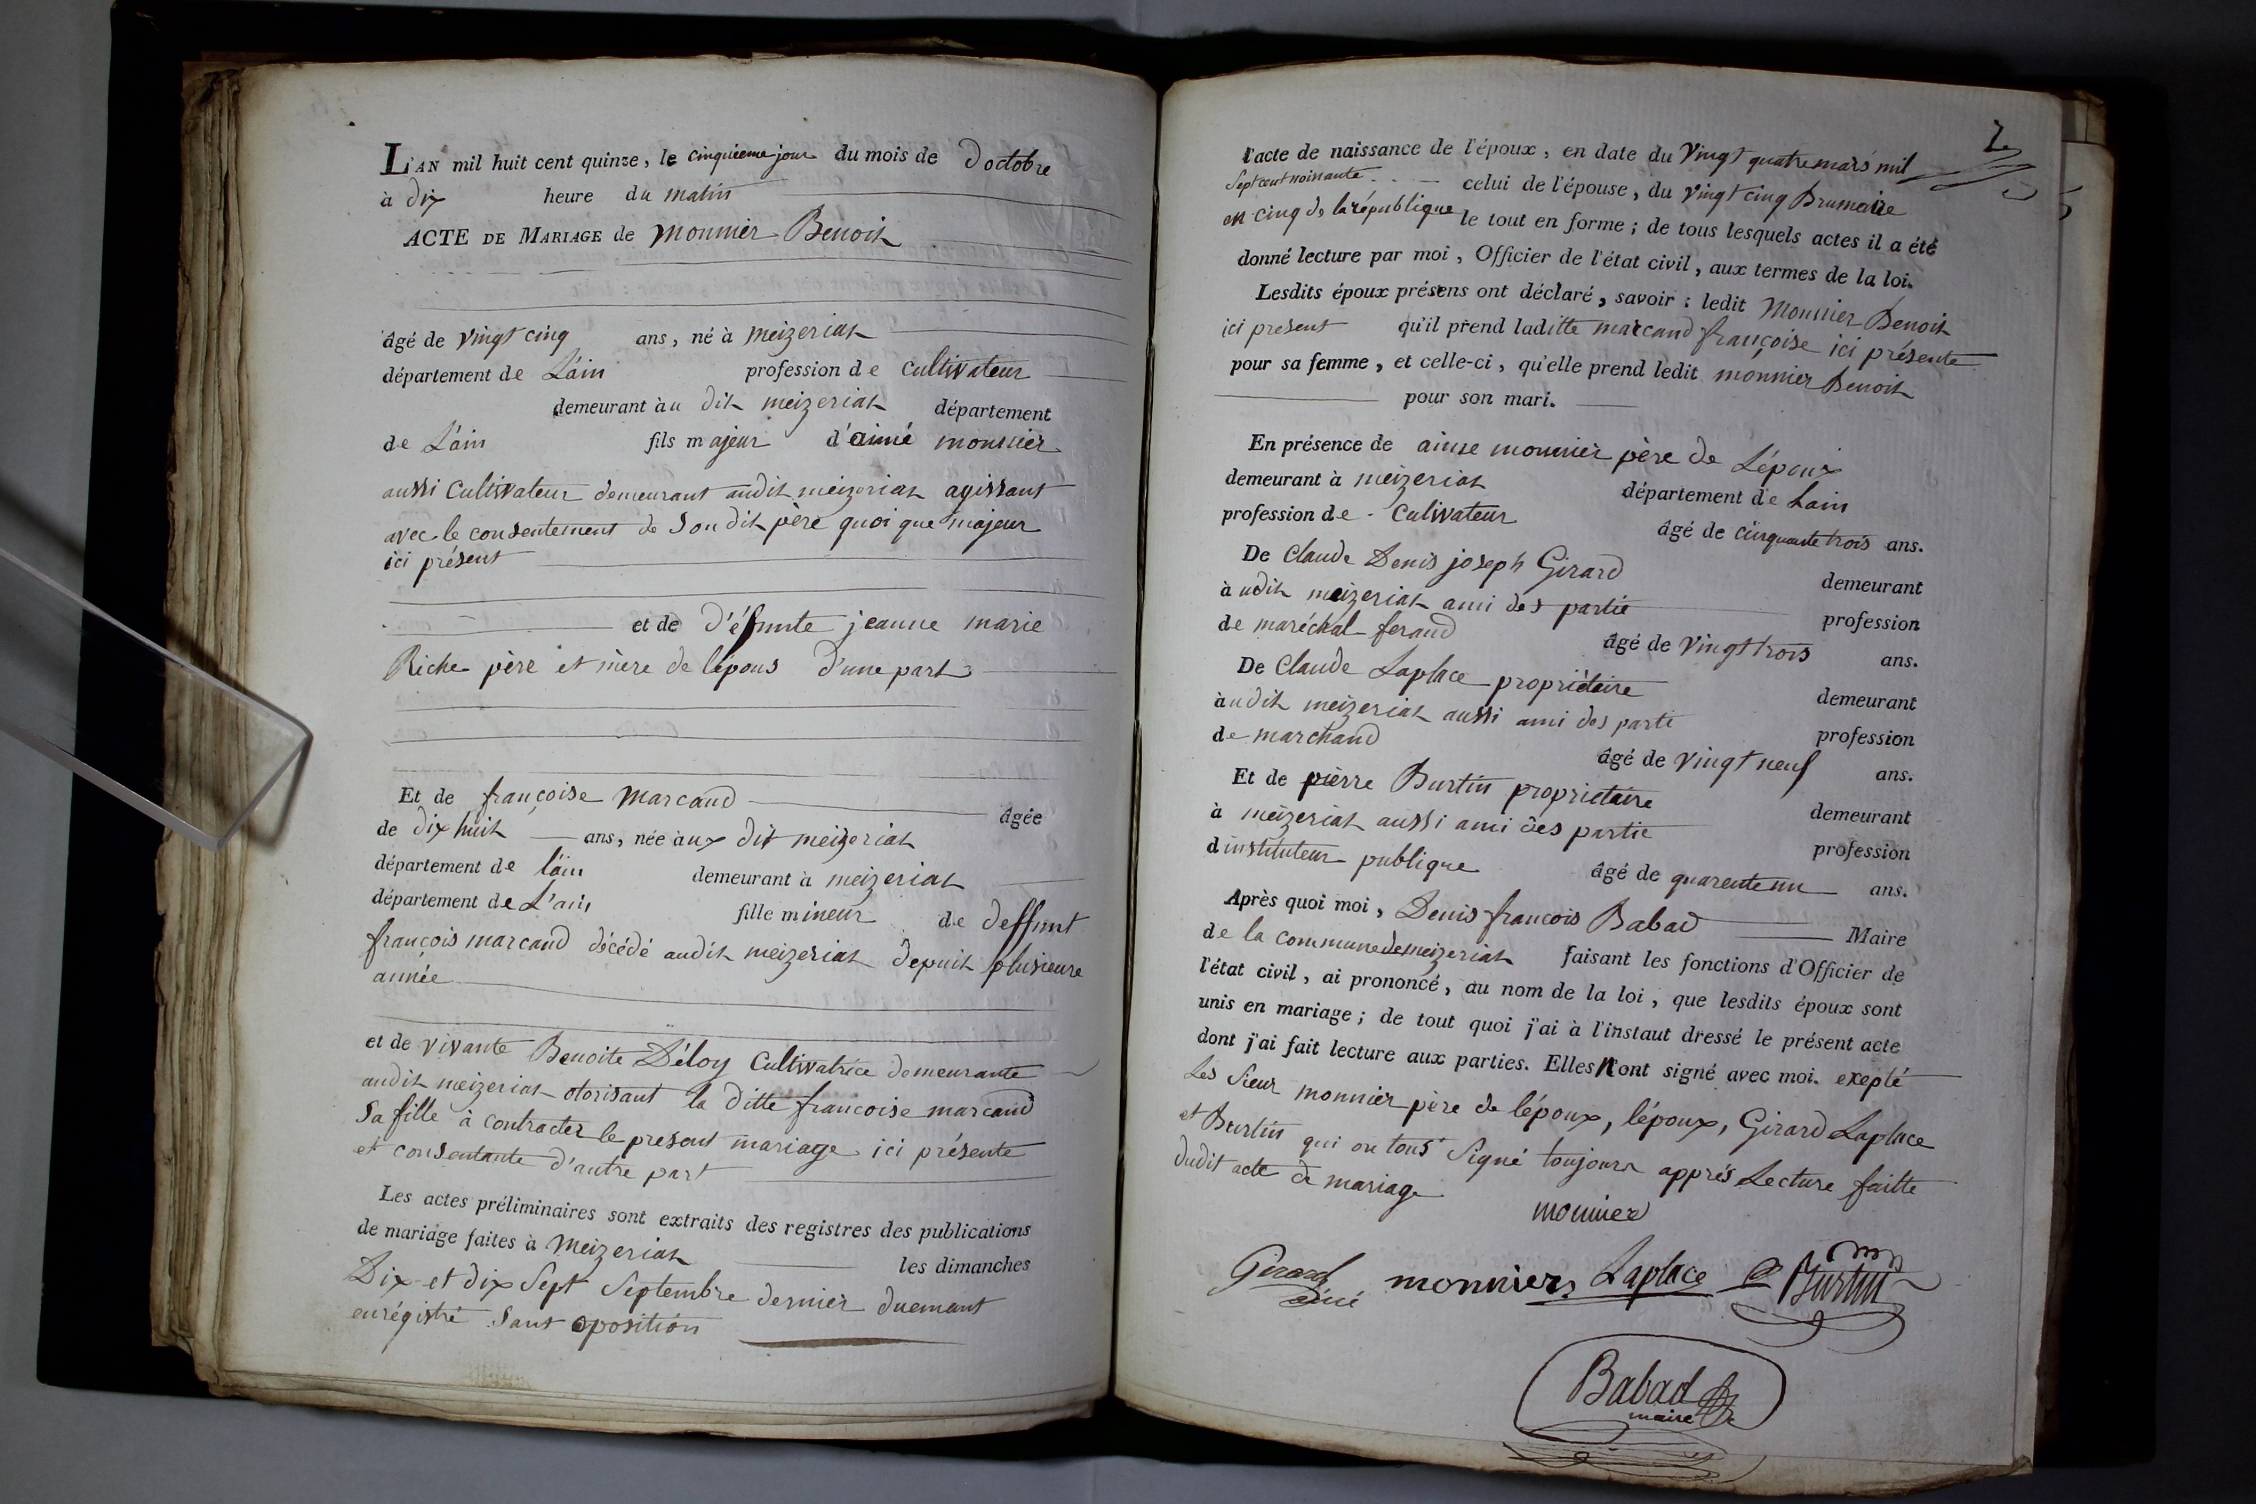 L'AN mil huit cent quinze, le cinquieme jour du mois de d octobre
à dix heure du matin
ACTE DE MARIAGE de monnier Benoit
âgé de vingt cinq ans, né à meizeriat
département de L'ain profession de cultivateur
demeurant àu dit meizeriat département
de L'ain fils majeur d'aimé monnier
aussi Cultivateur demeurant audit meizeriat agissant
avec le consentement de Son dit père quoi que majeur
ici présent
et de d'éfunte jeanne marie
Riche père et mère de lépous d'une part
Et de françoise marcand âgée
de dix huit ans, née àux dit meizeriat
département de l'ain demeurant à meizeriat
département de L'ain fille mineur de deffunt
françois marcand décédé audit meizeriat depuit plusieure
année
et de vivante Benoite Déloy Cultivatrice demeurante
audit meizeriat otorisant la ditte francoise marcand
Sa fille à contracter le present mariage ici présente
et consentante d'autre part
Les actes préliminaires sont extraits des registres des publications
de mariage faites à Meizeriat les dimanches
Dix et dix Sept Septembre dernier duemant
enrégistré Sant oposition
2
l'acte de naissance de l'époux, en date du Vingt quatre mars mil
Sept cent noinante celui de l'épouse, du vingt cinq Brumaire
en cinq de la république le tout en forme; de tous lesquels actes il a été
donné lecture par moi, Officier de l'état civil, aux termes de la loi.
Lesdits époux présens ont déclaré, savoir: ledit Monnier Benoit
ici present qu'il prend laditte marcand françoise ici présente
pour sa femme, et celle-ci, qu'elle prend ledit monnier Benoit
pour son mari.
En présence de aime monnier père de Lépoux
demeurant à meizeriat département de Lain
profession de Cultivateur âgé de cinquante trois ans.
De Claude Denis joseph Girard demeurant
à udit meizeriat ami des partie profession
de maréchal ferand âgé de vingt trois ans.
De Claude Laplace propriétaire demeurant
àudit meizeriat aussi ami des parti profession
de marchand âgé de vingt neuf ans.
Et de pierre Burtin proprietaire demeurant
à meizeriat aussi ami des partie profession
dinstituteur publique âgé de quarente un ans.
Après quoi moi, Denis francois Babad Maire
de la commune de meizeriat faisant les fonctions d'Officier de
l'état civil, ai prononcé, au nom de la loi, que lesdits époux sont
unis en mariage; de tout quoi j'ai à l'instaut dressé le présent acte
dont j'ai fait lecture aux parties. Elles N'ont signé avec moi. exepté
Les Sieur monnier père de lépoux, lépoux, Girard Laplace
et Burtin qui on tous Signé toujours apprés Lecture faitte
dudit acte de mariage
monnier
Girard monniers Laplace Burtin
ainé
Babad
maire